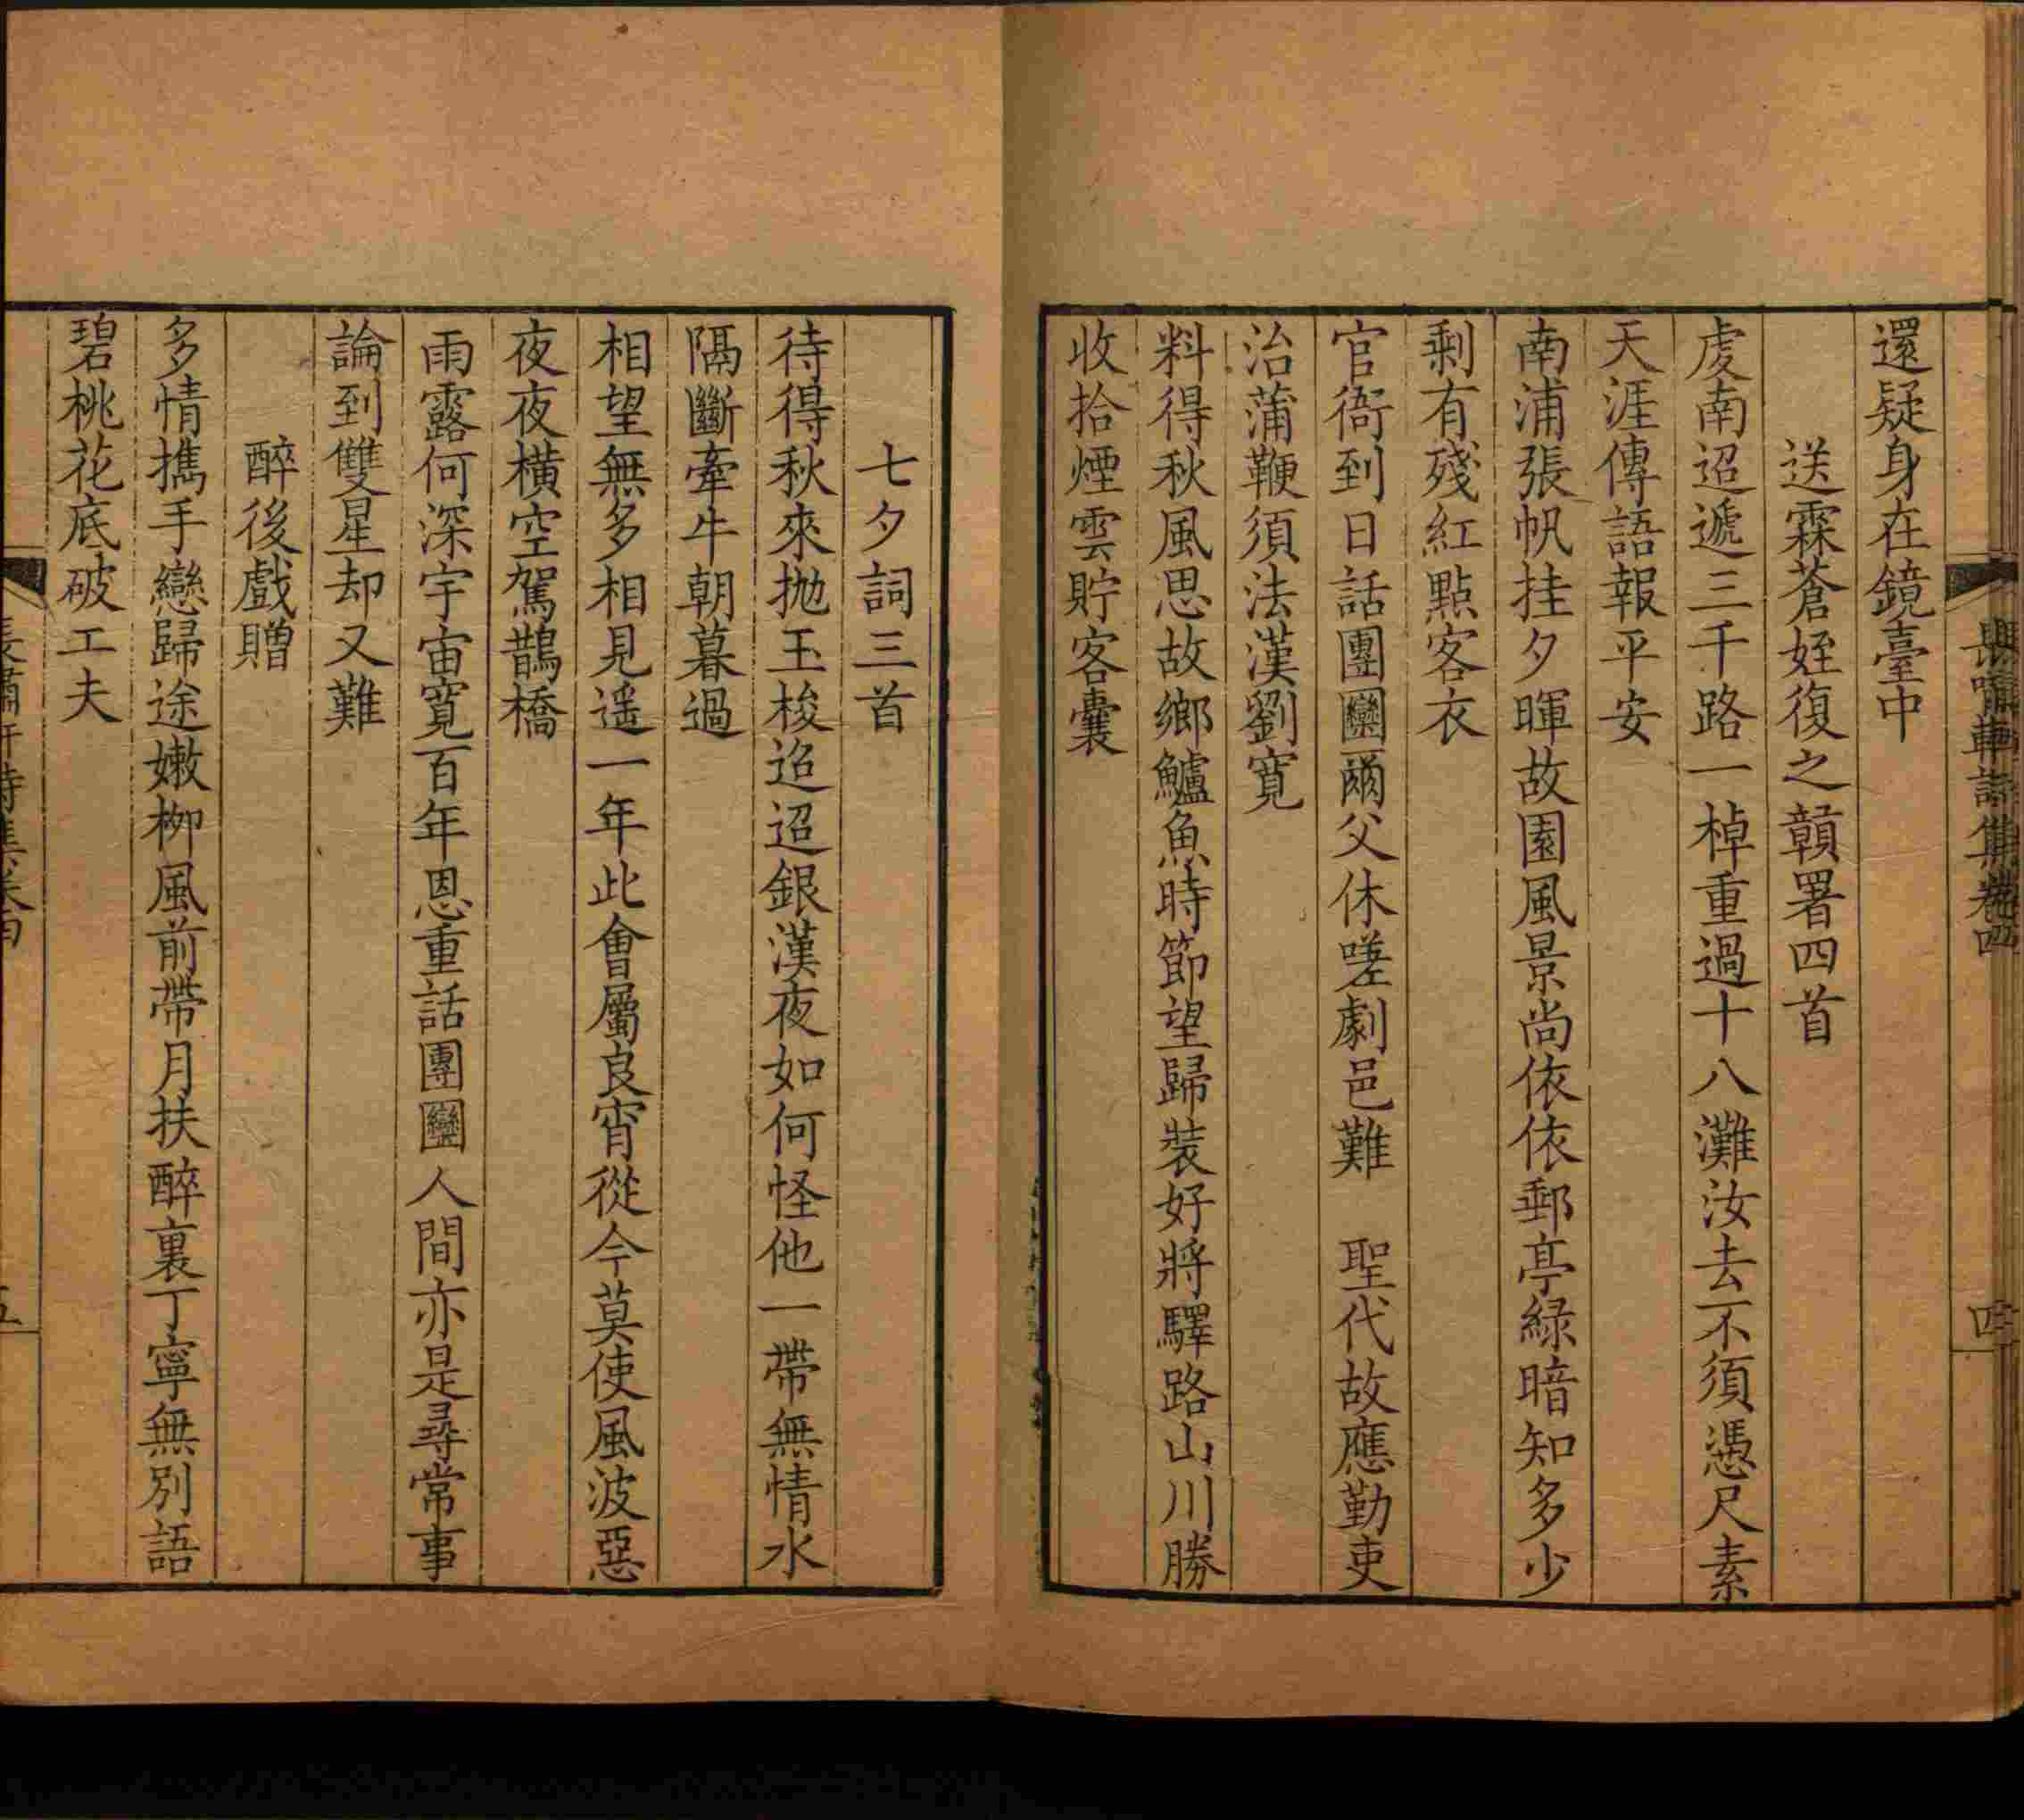 長嘯軒詩集卷四
四
還疑身在鏡臺中
送霖蒼姪復之贛署四首
虔南迢遞三千路一棹重過十八灘汝去不須憑尺素
天涯傳語報平安
南浦張帆挂夕暉故園風景尚依依郵亭綠暗知多少
剩有殘紅點客衣
官衙到日話團圞爾父休嗟劇邑難　聖代故應勤吏
治蒲鞭須法漢劉寬
料得秋風思故鄉鱸魚時節望歸裝好將驛路山川勝
收拾煙雲貯客囊
七夕詞三首
待得秋來拋玉梭迢迢銀漢夜如何怪他一帶無情水
隔斷牽牛朝暮過
相望無多相見遥一年此會屬良宵從今莫使風波惡
夜夜橫空駕鵲橋
雨露何深宇宙寬百年恩重話團圞人間亦是尋常事
論到雙星却又難
醉後戲贈
多情攜手戀歸途嫩柳風前帶月扶醉裏丁寧無別語
碧桃花底破工夫
長嘯軒詩集卷四
五